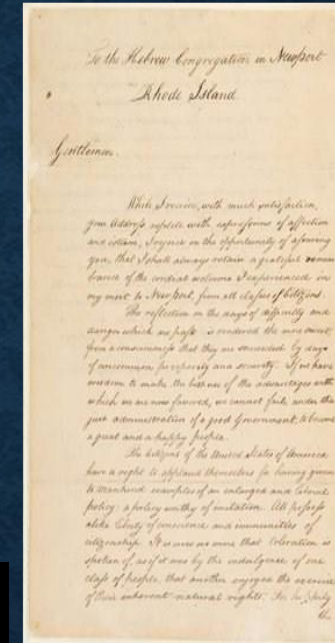 To the Hebrew Congregation in Newport
Rhode Island.
Gentlemen.
While I receive, with much satisfaction,
your Address replete with expressions of affection
and esteem, I rejoice in the opportunity of assuring
you, that I shall always retain a grateful remem
brance of the cordial welcome I experienced in
my visit to Newport, from all classes of Citizens.
The reflection on the days of difficulty and
danger which are past is rendered the more sweet,
from a consciousness that they are succeeded by days
of uncommon prosperity and security. If we have
wisdom to make the best use of the advantages with
which we are now favored, we cannot fail, under the
just administration of a good Government, to become
a great and a happy people.
The Citizens of the United States of America
have a right to applaud themselves for having given
to mankind examples of an enlarged and liberal
policy: a policy worthy of imitation. All possess
alike liberty of conscience and immunities of
citizenship. It is now no more that toleration is
spoken of, as if it was by the indulgence of one
class of people, that another enjoyed the exercise
of their inherent natural rights. For